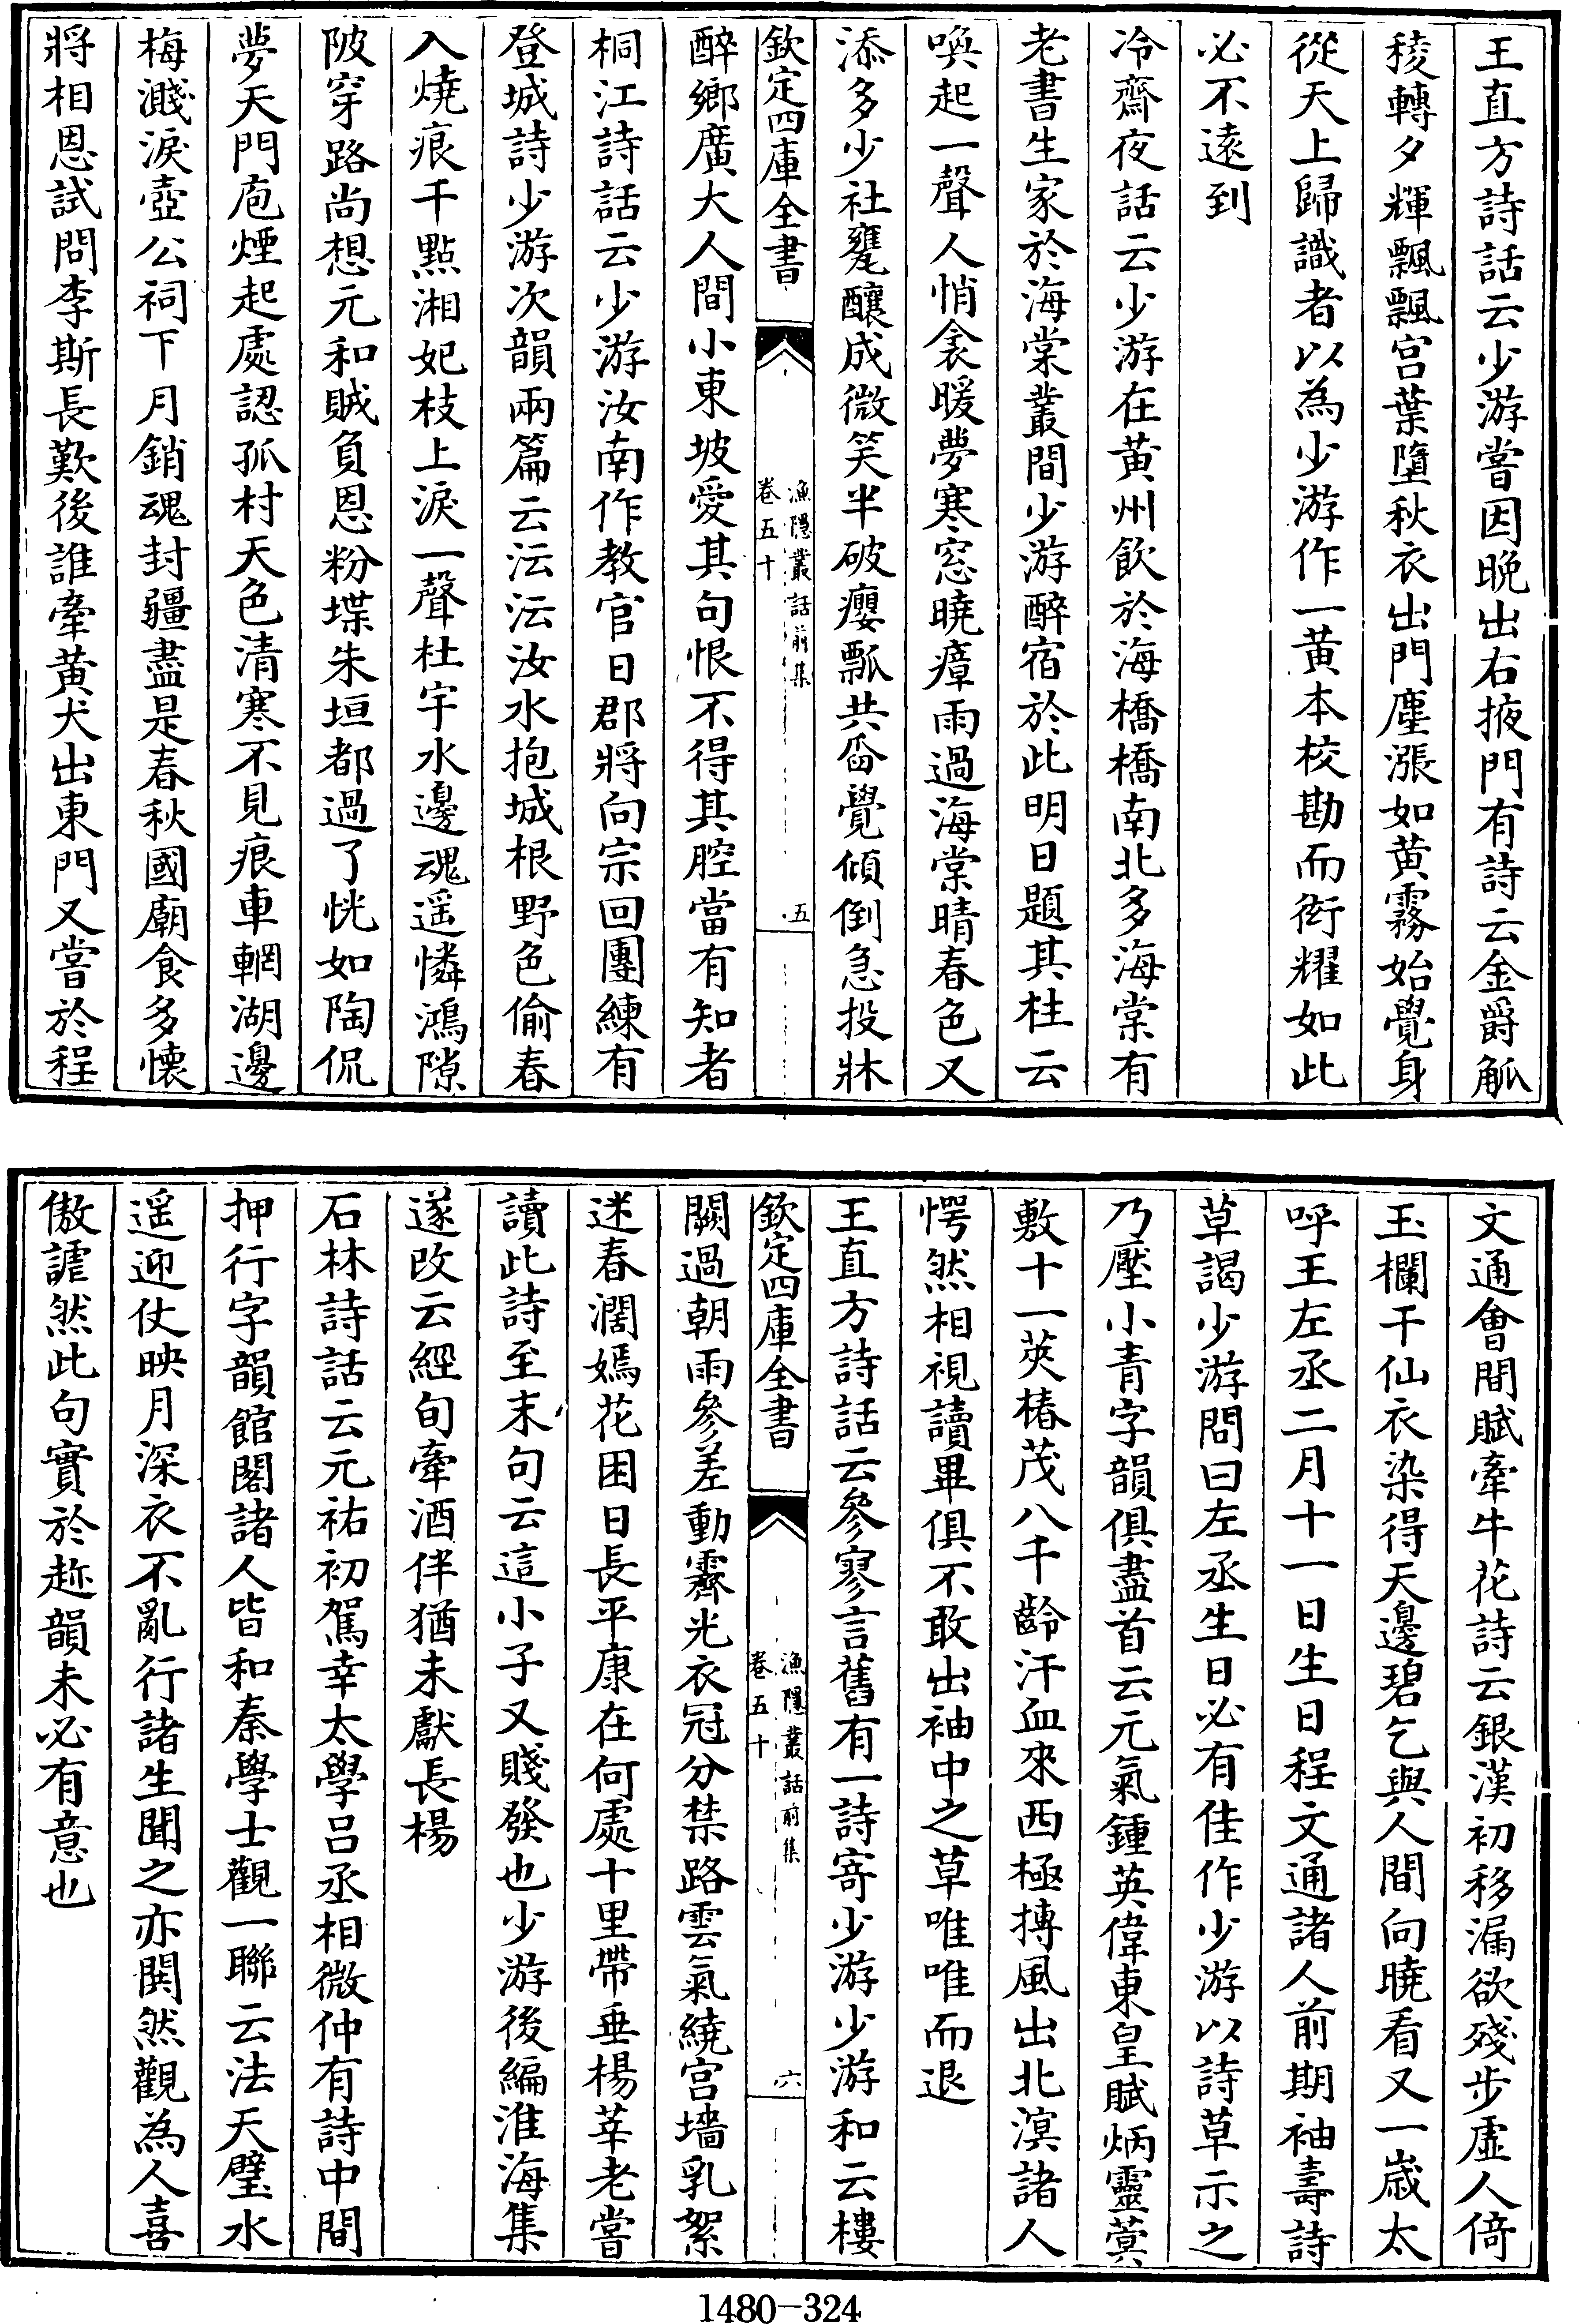 王直方詩話云少游嘗因晚出右掖門有詩云金爵觚
稜轉夕輝飄飄宫葉墮秋衣出門塵漲如黄霧始覺身
從天上歸識者以為少游作一黄本校勘而衒耀如此
必不遠到
冷齋夜話云少游在黄州飲於海橋橋南北多海棠有
老書生家於海棠叢間少游醉宿於此明日題其柱云
喚起一聲人悄衾暖夢寒窓曉瘴雨過海棠晴春色又
添多少社甕釀成微笑半破癭瓢共舀覺傾倒急投牀
欽定四庫全書
漁隱叢話前集
卷五十
五
醉鄉廣大人間小東坡愛其句恨不得其腔當有知者
桐江詩話云少游汝南作教官日郡將向宗回團練有
登城詩少游次韻兩篇云沄沄汝水抱城根野色偷春
入燒痕千點湘妃枝上淚一聲杜宇水邊魂遥憐鴻隙
陂穿路尚想元和賊負恩粉堞朱垣都過了恍如陶侃
夢天門庖煙起處認孤村天色清寒不見痕車輞湖邊
梅濺淚壺公祠下月銷魂封疆盡是春秋國廟食多懐
將相恩試問李斯長歎後誰牽黄犬出東門又嘗於程
文通會間賦牽牛花詩云銀漢初移漏欲殘步虚人倚
玉欄干仙衣染得天邊碧乞與人間向曉看又一嵗太
呼王左丞二月十一日生日程文通諸人前期袖壽詩
草謁少游問曰左丞生日必有佳作少游以詩草示之
乃壓小青字韻俱盡首云元氣鍾英偉東皇賦炳靈蓂
敷十一莢椿茂八千齡汗血來西極搏風出北溟諸人
愕然相視讀畢俱不敢出袖中之草唯唯而退
王直方詩話云參寥言舊有一詩寄少游少游和云樓
欽定四庫全書
漁隱叢話前集
卷五十
六
闕過朝雨參差動霽光衣冠分禁路雲氣繞宫墻乳絮
迷春濶嫣花困日長平康在何處十里帶垂楊莘老嘗
讀此詩至末句云這小子又賤發也少游後編淮海集
遂改云經旬牽酒伴猶未獻長楊
石林詩話云元祐初駕幸太學吕丞相微仲有詩中間
押行字韻館閣諸人皆和秦學士觀一聯云法天璧水
遥迎仗映月深衣不亂行諸生聞之亦閧然觀為人喜
傲謔然此句實於趂韻未必有意也
1480-324